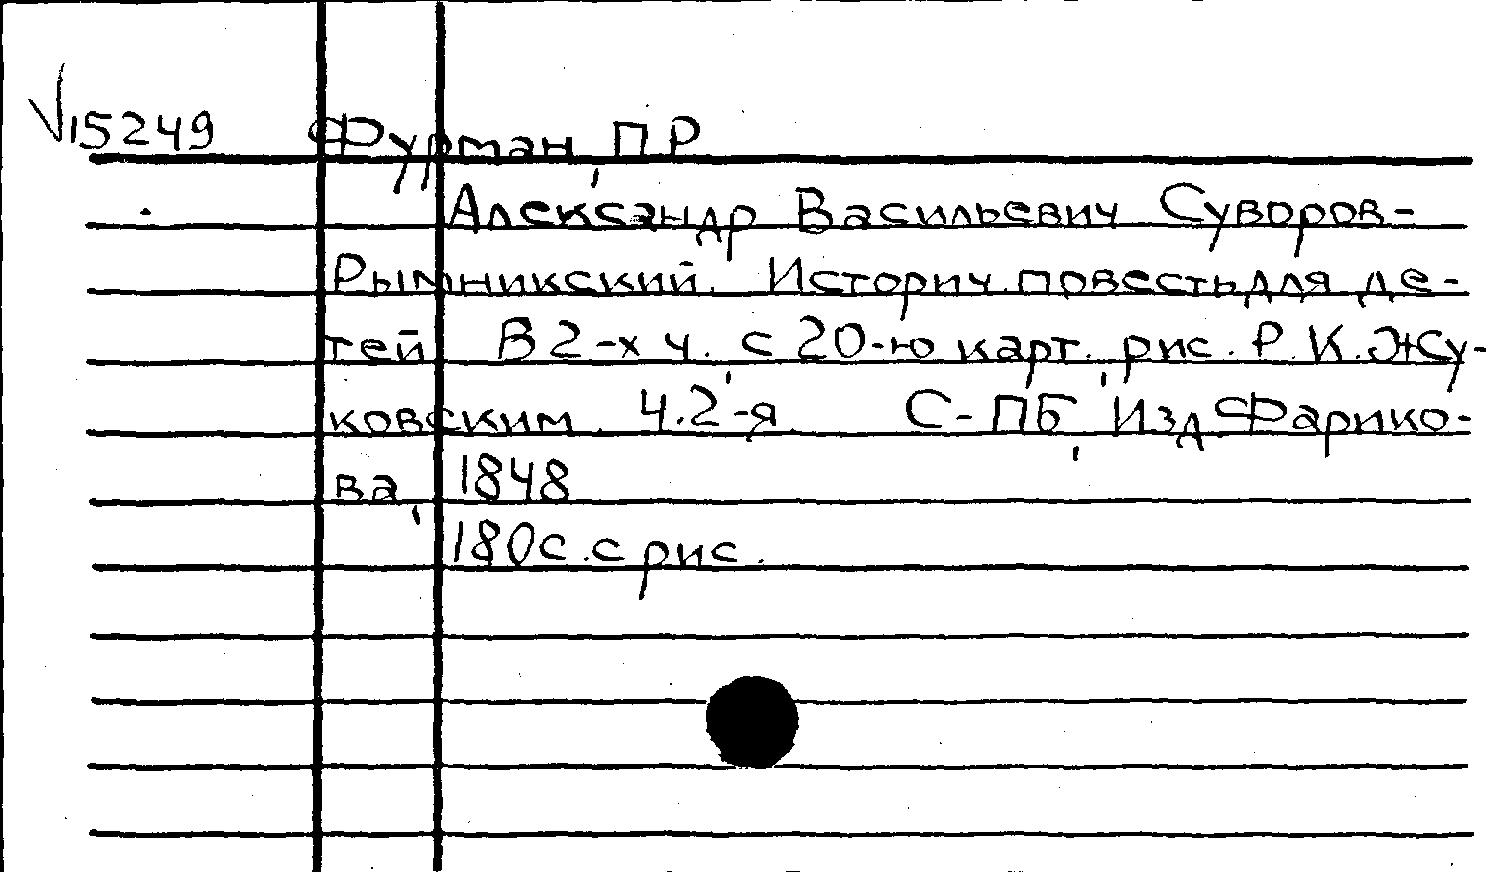 √15249 Фурман, П Р
Александр Васильевич Суворов-
Рымникский. Историч. повесть для де-
тей В 2-х ч., с 20-ю карт., рис. Р. К. Жу-
ковским. Ч. 2-я. С-ПБ, Изд Фарико-
ва, 1848
180с. с рис.